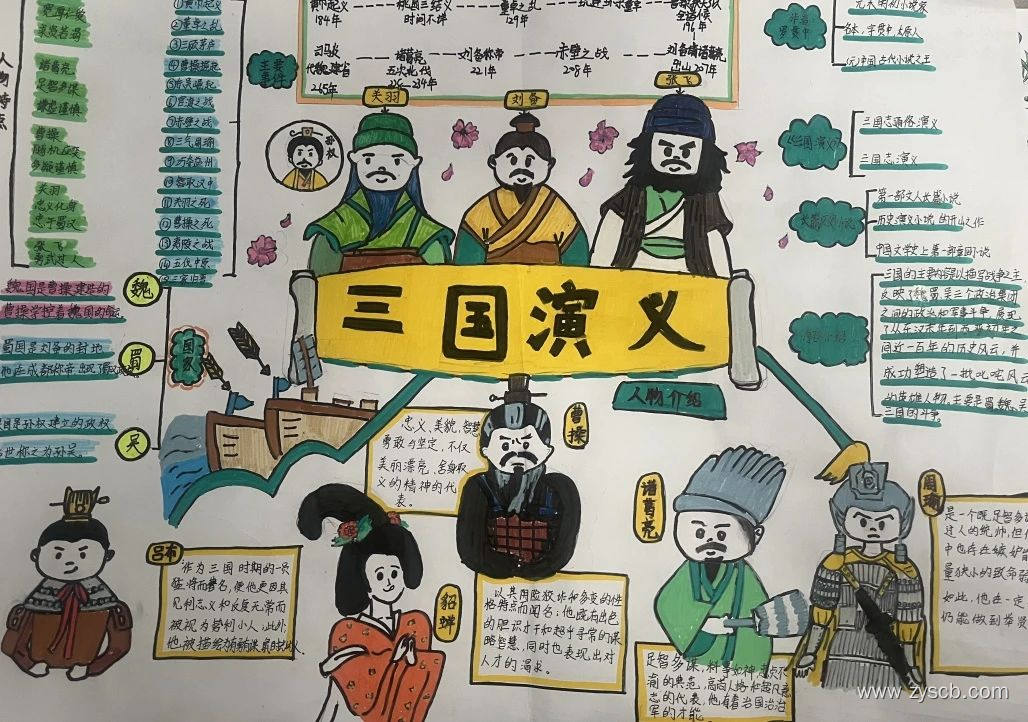 黄巾起义
184年
桃园三结义
时间不详
董卓之乱
129年
196年
主要
事件
司马炎
代魏建晋
265年
诸葛亮
五次北伐
228—234年
刘备称帝
221年
赤壁之战
208年
人物特点
宽厚仁爱
求贤若渴
诸葛亮
足智多谋
谦虚谨慎
曹操
随机应变
多疑谨慎
关羽
忠义化身
忠于蜀汉
张飞
勇武过人
①黄巾起义
②董卓之乱
③三顾茅庐
④曹操崛起
⑤东吴崛起
⑥官渡之战
⑦赤壁之战
⑧三气周瑜
⑨巧夺益州
⑩智取汉中
⑪关羽之死
⑫曹操之死
⑬夷陵之战
⑭五伐中原
⑮三家归晋
关羽
刘备
张飞
孙权
作者
罗贯中
名本,字贯中,太原人
中国古代小说之王
《三国演义》
三国志通俗演义
三国志演义
第一部文人长篇小说
历史演义小说的开山之作
中国文学史上第一部章回小说
三国的主要内容以描写战争之主
反映了魏、蜀、吴三个政治集团
之间的政治和军事斗争,展现
间近一百年的历史风云,并
成功塑造了一批叱咤风云
的英雄人物,主要是蜀、魏、吴
三国的斗争
魏
魏国是曹操建起的
曹操掌控着魏国的
蜀
蜀国是刘备的封地
他在成都称帝
吴
吴国是孙权建立的政权
世称之为孙吴。
国家
三国演义
人物介绍
忠义、美貌、智慧
勇敢与坚定,不仅
美丽漂亮,舍身取
义的精神的代
表。
曹操
吕布
作为三国时期的一员
猛将而著名,使他更因其
见利忘义和反复无常而
被视为势利小人,此外
他被描绘为
貂蝉
以其阴险狡诈和多变的性
格特点而闻名;他既有出色
的胆识才干和超乎寻常的谋
略智慧,同时也表现出对
人才的渴求。
诸葛亮
足智多谋,料事如神,忠贞不
渝的典范,高尚人格和
的代表,他有着治国治
军的才能。
周瑜
是一个既足智多谋
过人的统帅,但
中也存在嫉妒
量狭小的致命弱
如此,他在一定
仍能做到
www.zyscb.com